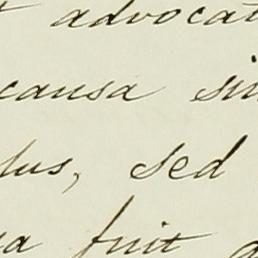 advocat
causa sin
lus, sed
fuit